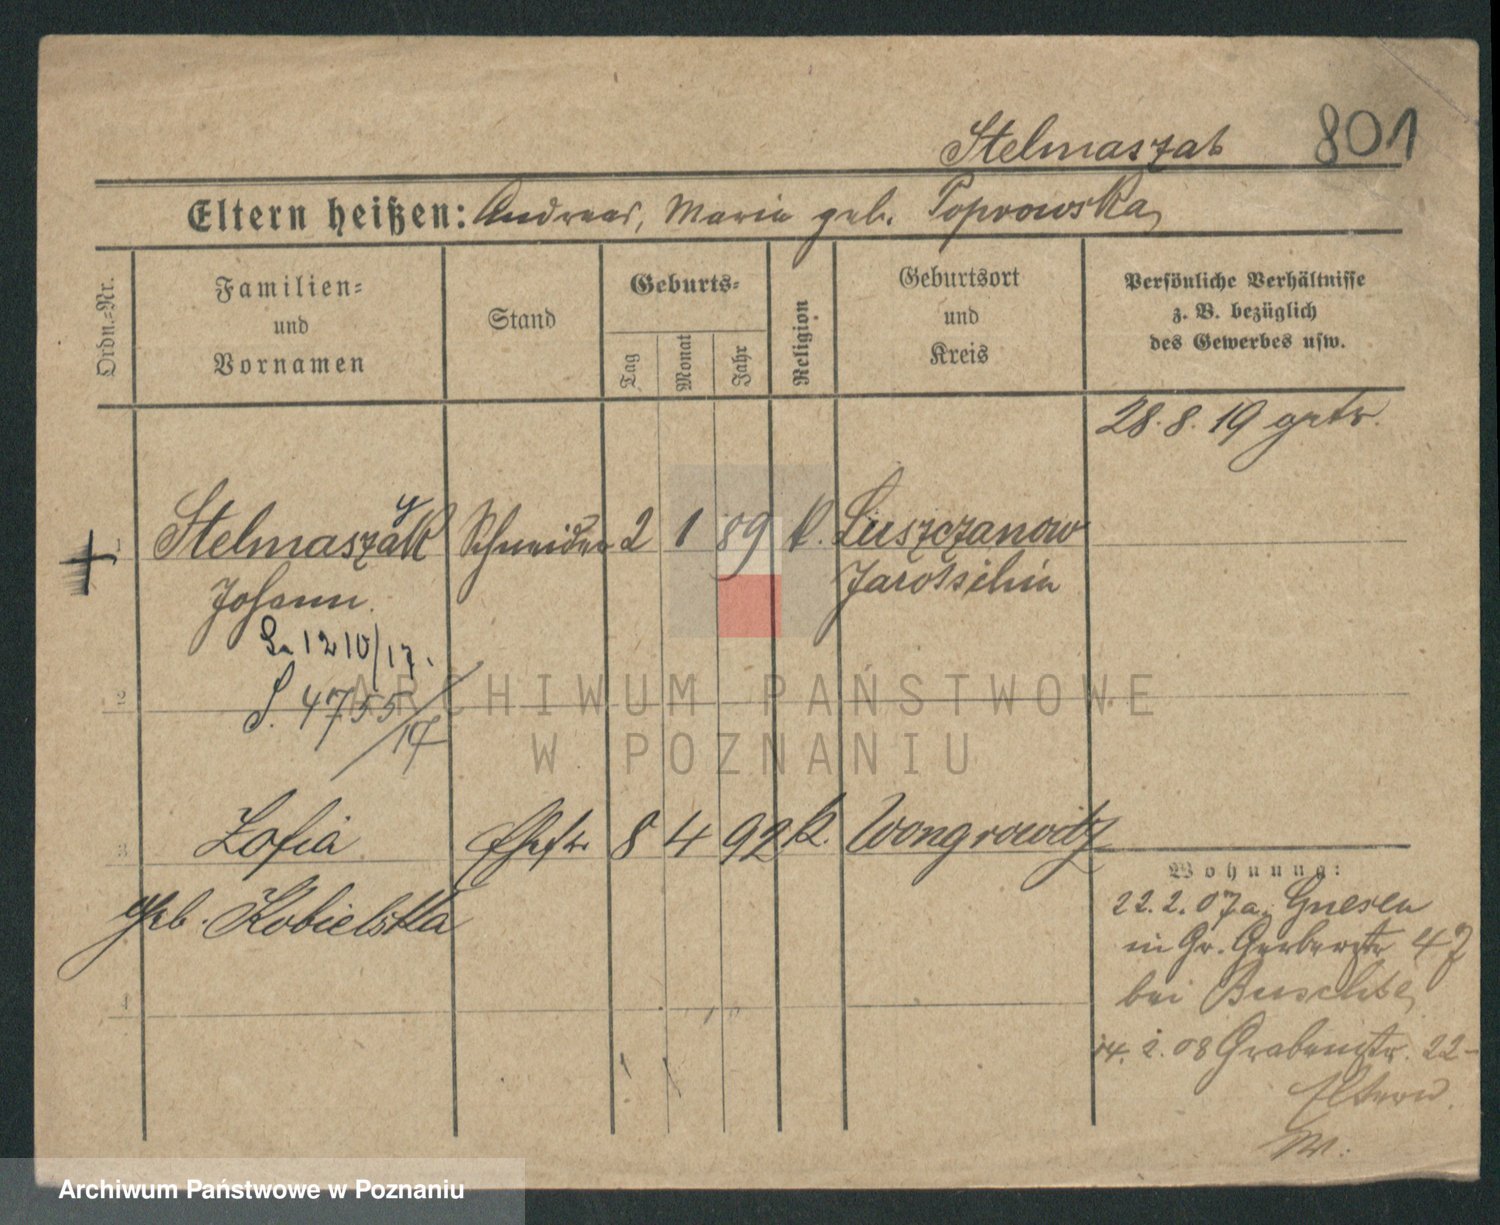 Stelmaszak 801
Eltern heißen: Andreas, Maria geb. Poprowska
Ordn.-Nr.
Familien-
und
Vornamen
Stand
Geburts-
Tag
Monat
Jahr
Religion
Geburtsort
und
Kreis
Persönliche Verhältnisse
z. B. bezüglich
des Gewerbes usw.
28. 8. 19 getr.
1 Stelmaszak Schneider 2 1 89 k. Luszczanow
y
Johann. Jarotschin
1210/17.
S. 4755/17
2
3 Zofia Ehefr. 8 4 92 k. Wongrowitz
geb. Kobielska
4
Wohnung:
22. 2. 07 a. Gnesen
in Gr. Gerberstr. 47
bei
14. 2. 08 Grabenstr. 22-
Eltern.
ARCHIWUM PAŃSTWOWE
W POZNANIU
Archiwum Państwowe w Poznaniu